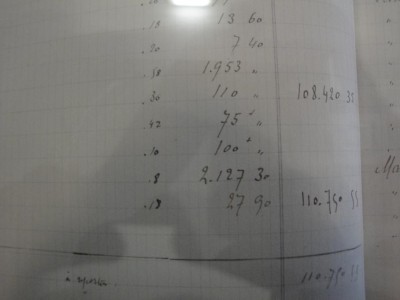 .18 13 60
.20 7 40
.58 1.953 "
.30 110 " 108.420 35
.42 75 "
.10 100 "
.8 2.127 30
.18 27 90 110.750 55
110.750 55